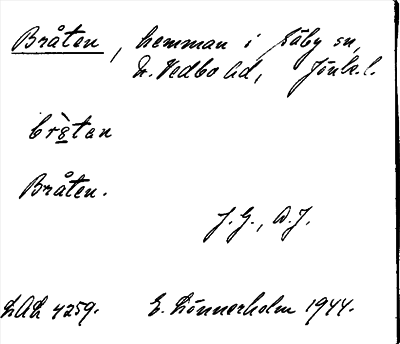 Bråten, hemman i Säby sn,
N. Vedbo hd, Jönk. l.
brs̀tan
Bråten.
J. G., A. J.
LAL 4259. E. Lönnerholm 1944.